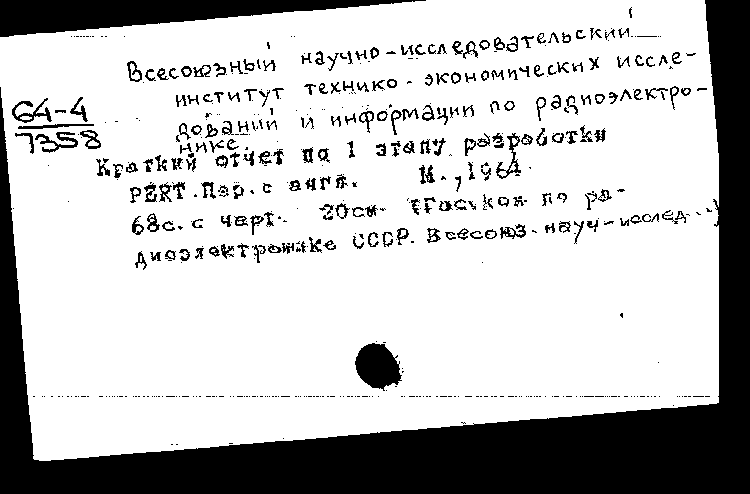 Всесоюзный научно-исследовательский
институт технико-экономических иссле-
64-4
7358
дований и информации по радиоэлектро-
нике.
Краткий отчет по 1 этапу разработки
PERT. Пер. с англ. М., 1964.
68с. с черт. 20см. (Гос. ком. по ра-
диоэлектронике СССР. Всесоюз. науч-исслед...)